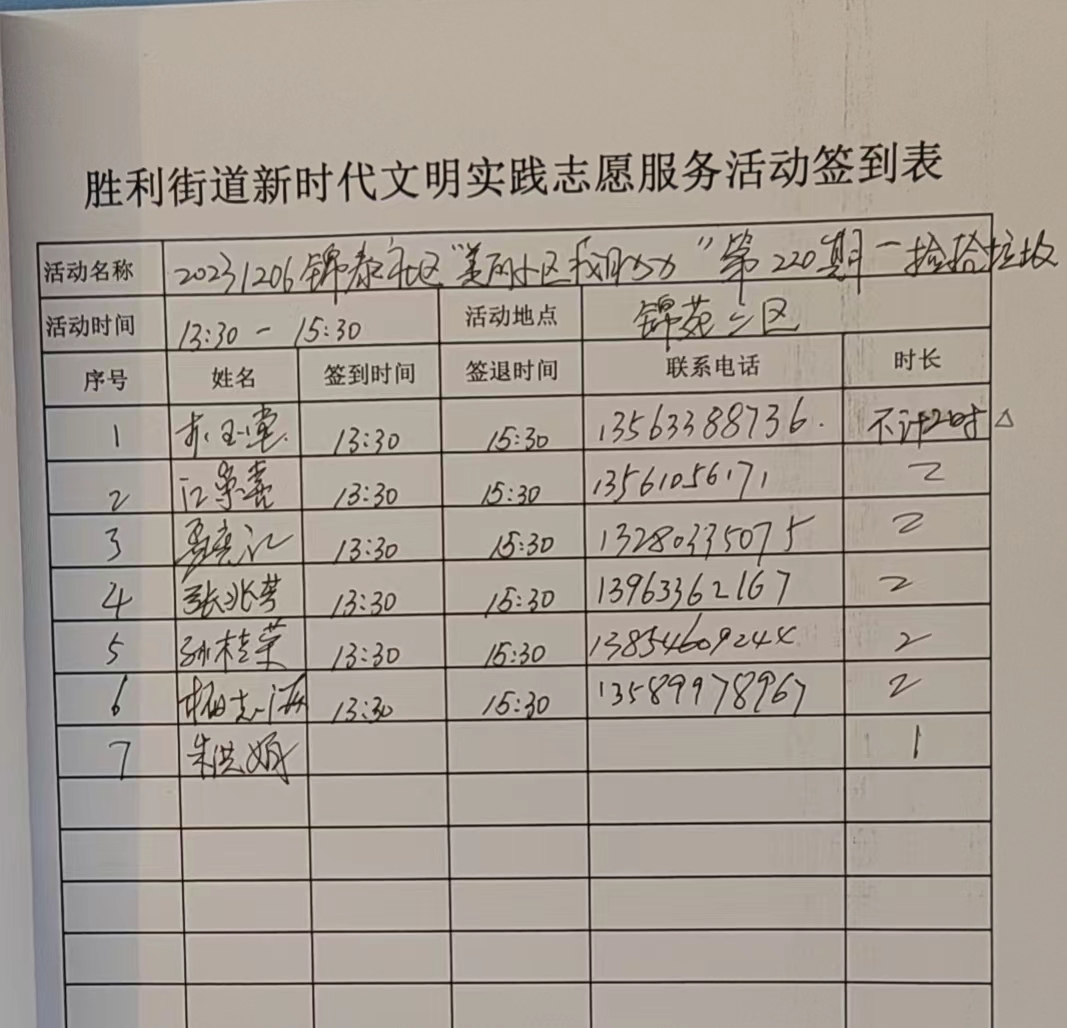 胜利街道新时代文明实践志愿服务活动签到表
活动名称 20231206锦泰社区“美丽小区我助力”第220期一捡拾垃圾
活动时间 13:30 - 15:30 活动地点 锦苑三区
序号 姓名 签到时间 签退时间 联系电话 时长
1 玉堂 13:30 15:30 13563388736. 不计时 △
2 江荣喜 13:30 15:30 13561056171 2
3 13:30 15:30 13280335075 2
4 张兆芳 13:30 15:30 13963362167 2
5 孙桂荣 13:30 15:30 13854609244 2
6 柏志海 13:30 15:30 13589978967 2
7 朱洪娟 1